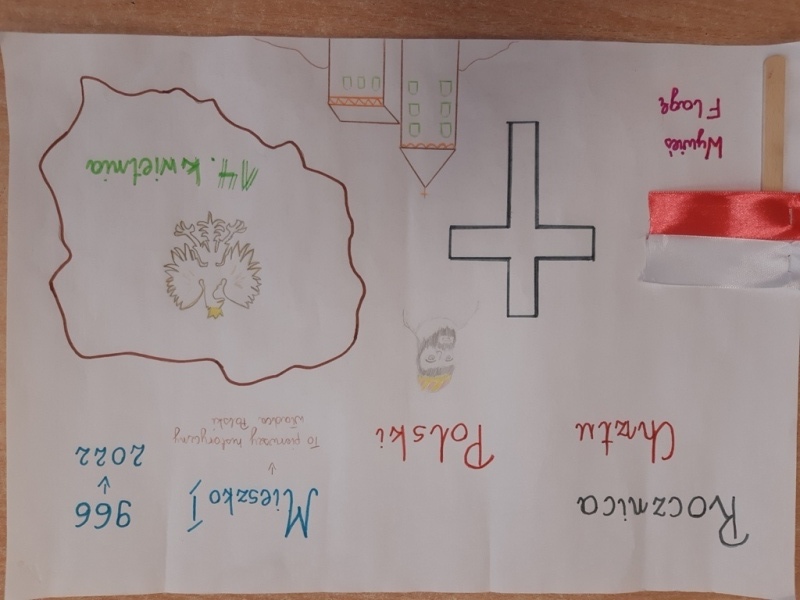 Rocznica
Chrztu
Polski
Mieszko I
→
To pierwszy historyczny
władca Polski
966
→
2022
Wywieś
Flagę
14. kwietnia